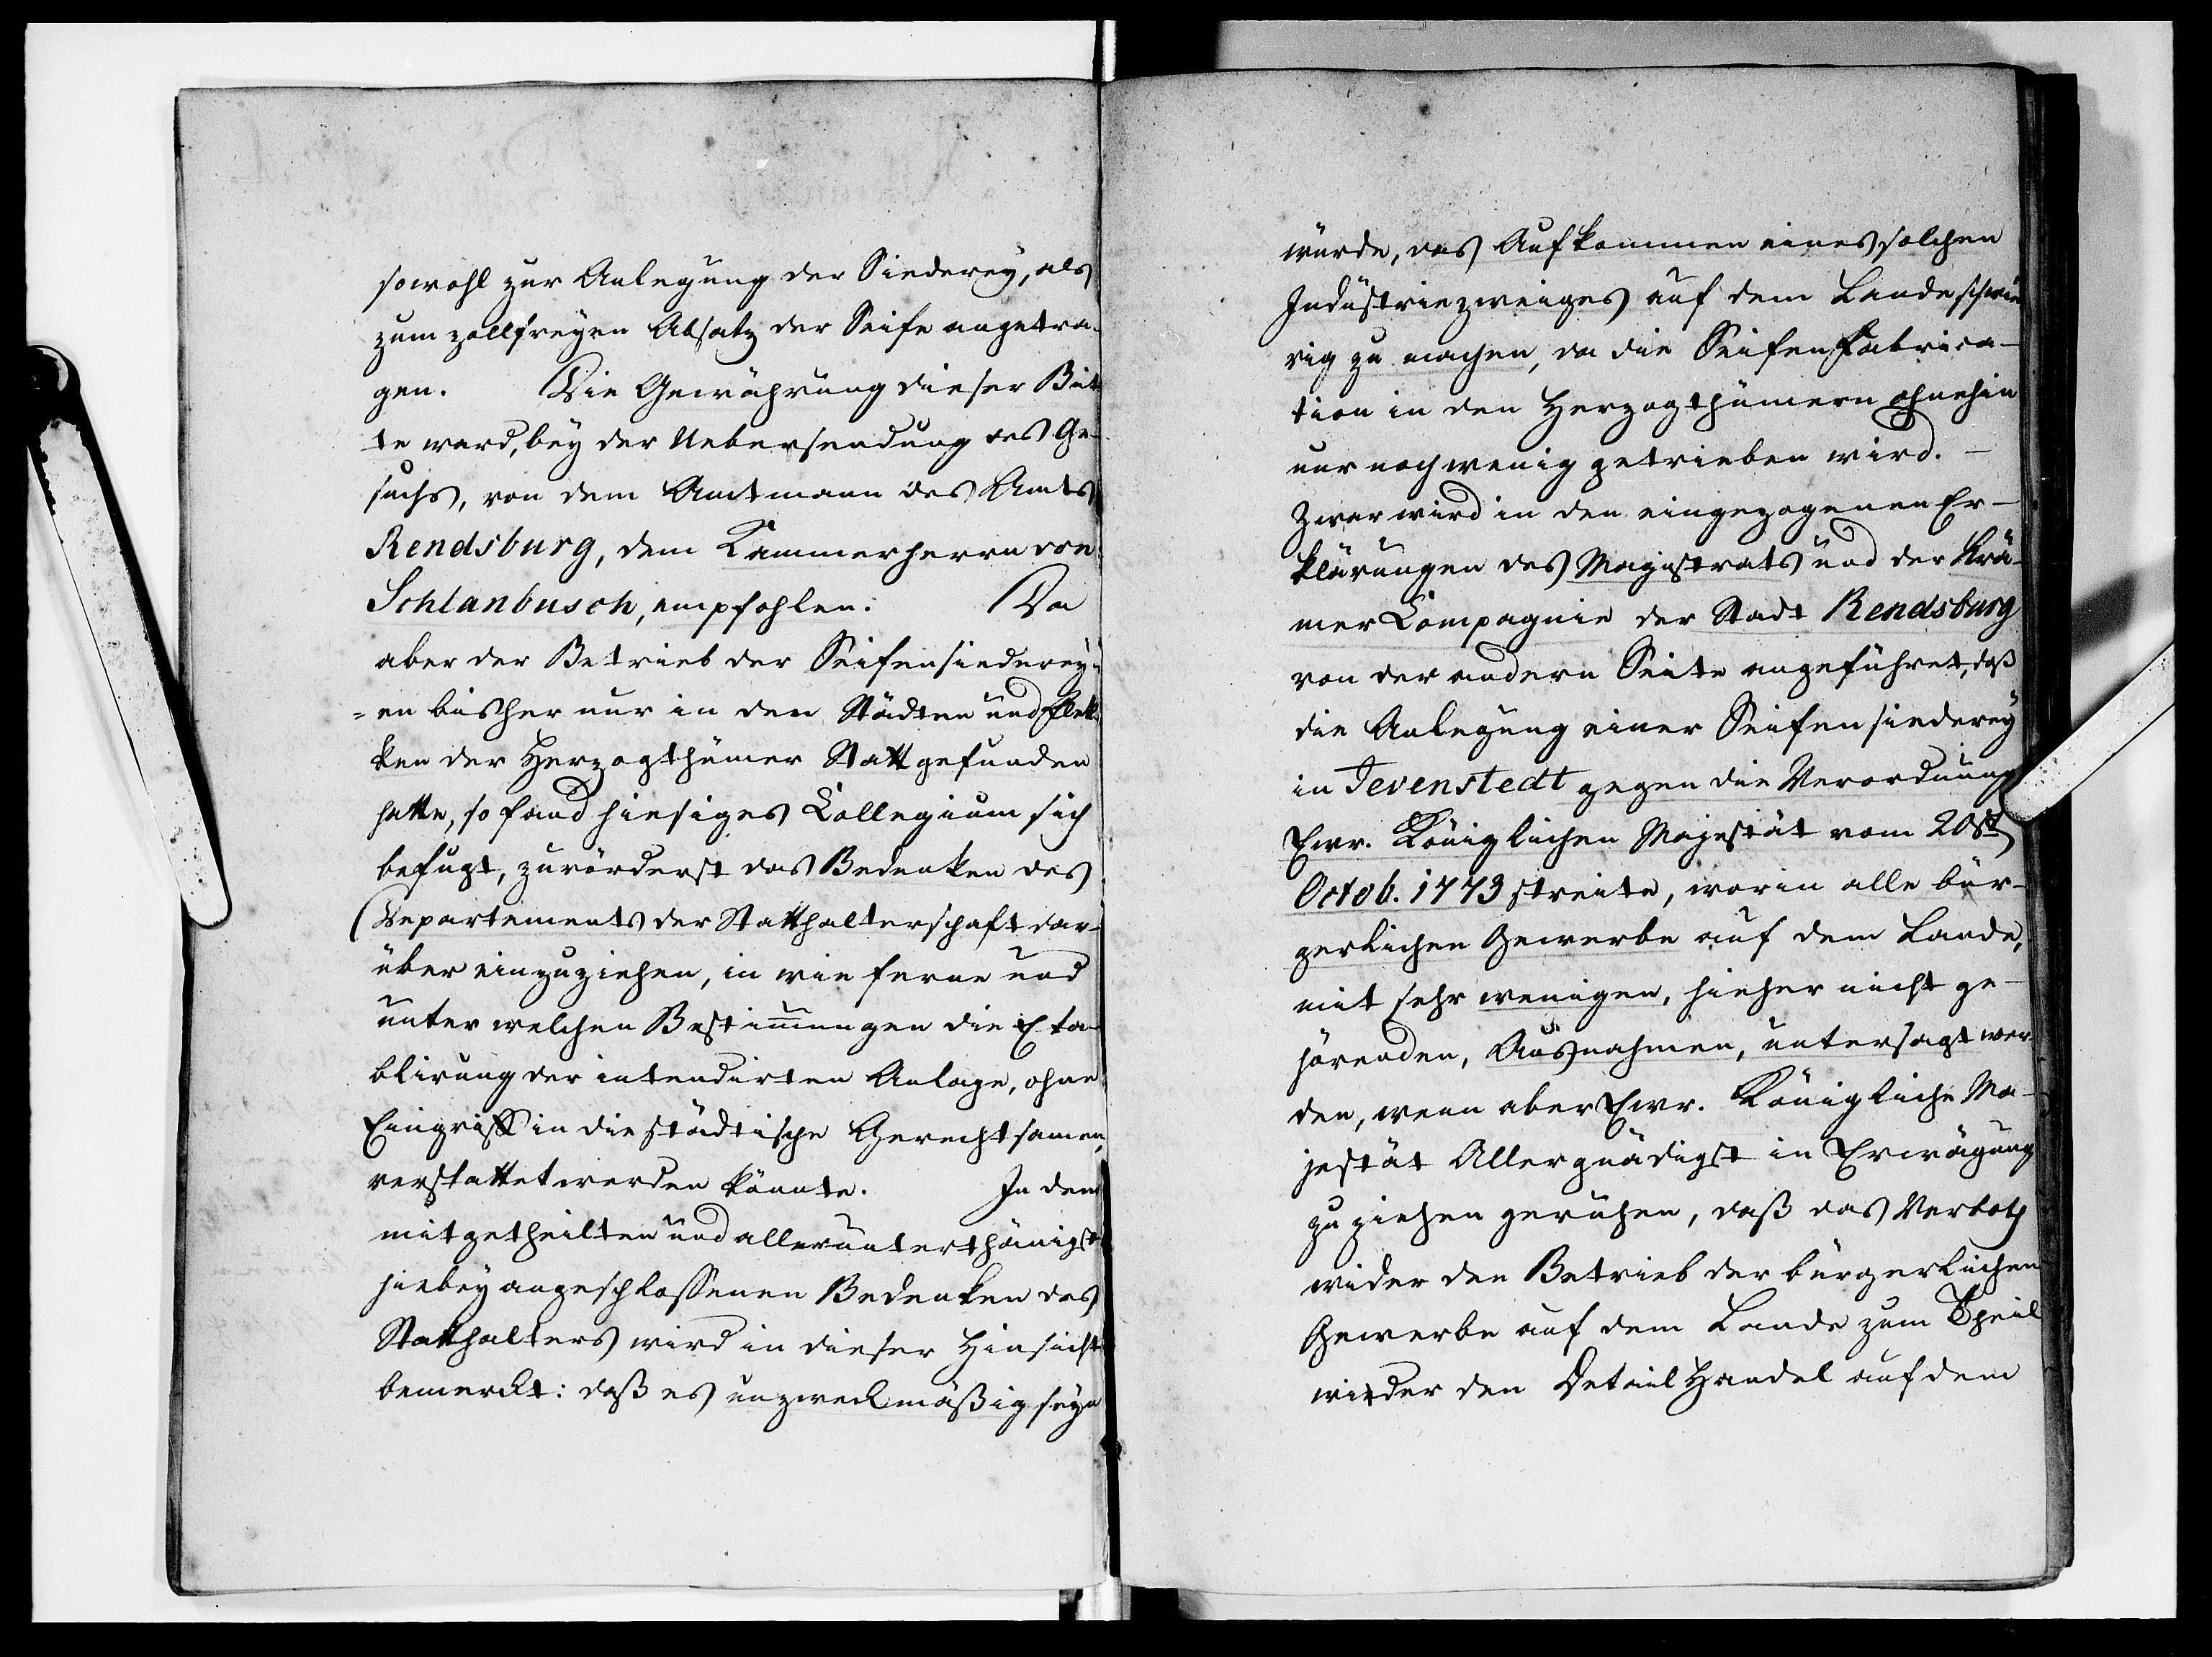 sowohl zur Anlegung der Siederey, als
zum zollfreyen Absatz der Seife angetra-
gen. Die Gewährung dieser Bit
te ward, bey der Uebersendung des Ge-
suchs, von dem Amtmann des Amts
Rendsburg, dem Kammerherrn von
Schlanbusch, empfohlen. Da
aber der Betrieb der Seifensiederey-
=en bisher nur in den Städten und Flek-
ken der Herzogthümer Statt gefunden
hatte, so fand hiesiges Collegium sich
befugt, zuvörderst das Bedenken des
Departements der Statthalterschaft dar-
über einzuziehen, in wie ferne und
unter welchen Bestimungen die Eta-
blirung der intendirten Anlage, ohne
Eingriff in die städtische Gerechtsamen,
verstattet werden könnte. In dem
mitgetheilten und allerunterthänigst
hiebey angeschlossenen Bedenken des
Statthalters wird in dieser Hinsicht
bemerckt: daß es unzweckmäßig seyn
würde, das Aufkommen eines solchen
Industriezweiges auf dem Lande schwie
rig zu machen, da die Seifenfabrica-
tion in den Herzogthümern ohnehin
nur noch wenig getrieben wird. -
Zwar wird in den eingezogenen Er-
klärungen des Magistrats und der Krä-
mer Compagnie der Stadt Rendsburg
von der andern Seite angeführet, daß
die Anlegung einer Seifensiederey
in Jevenstedt gegen die Verordnung
Ewr. Königlichen Majestät vom 20st
Octob. 1773 streite, worin alle bür-
gerlichen Gewerbe auf dem Lande,
mit sehr wenigen, hieher nicht ge-
hörenden, Ausnahmen, untersagt wer-
den, wenn aber Ewr. Königliche Ma-
jestät Allergnädigst in Erwägung
zu ziehen geruhen, daß das Verbot
wider den Betrieb der bürgerlichen
Gewerbe auf dem Lande zum Theil
wieder den Detail Handel auf dem